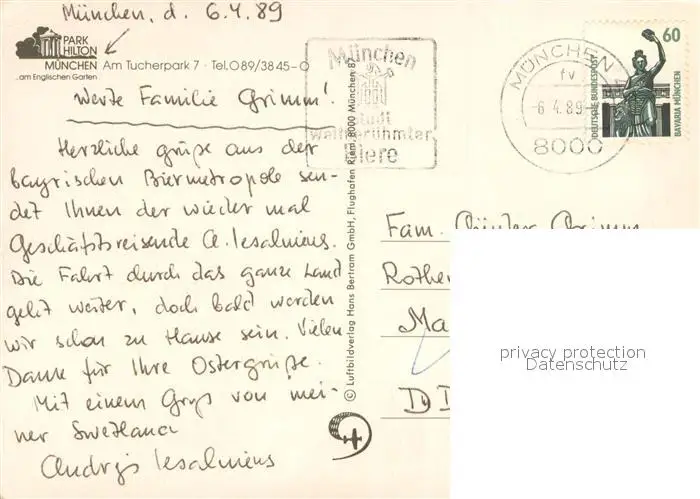 München, d. 6.4.89
PARK
HILTON
MÜNCHEN Am Tucherpark 7 · Tel. 089/3845-0
...am Englischen Garten
Werte Familie Grimm!
Herzliche grüße aus der
bayrischen Biermetropole sen-
det Ihnen der wieder mal
Geschäftsreisende A. Iesalniens.
Die Fahrt durch das ganze Land
geht weiter, doch bald werden
wir schon zu Hause sein. Vielen
Danke für Ihre Ostergrüße.
Mit einem Gruß von mei-
ner Swetlana
Andrijs Iesalniens
© Luftbildverlag Hans Bertram GmbH, Flughafen Riem, 8000 München 87
München
Stadt
weltberühmter
Biere
MÜNCHEN
fv
-6.4.89-
8000
60
DEUTSCHE BUNDESPOST
BAVARIA MÜNCHEN
Fam. Günter Grimm
Rothe
Ma
DDR
privacy protection
Datenschutz